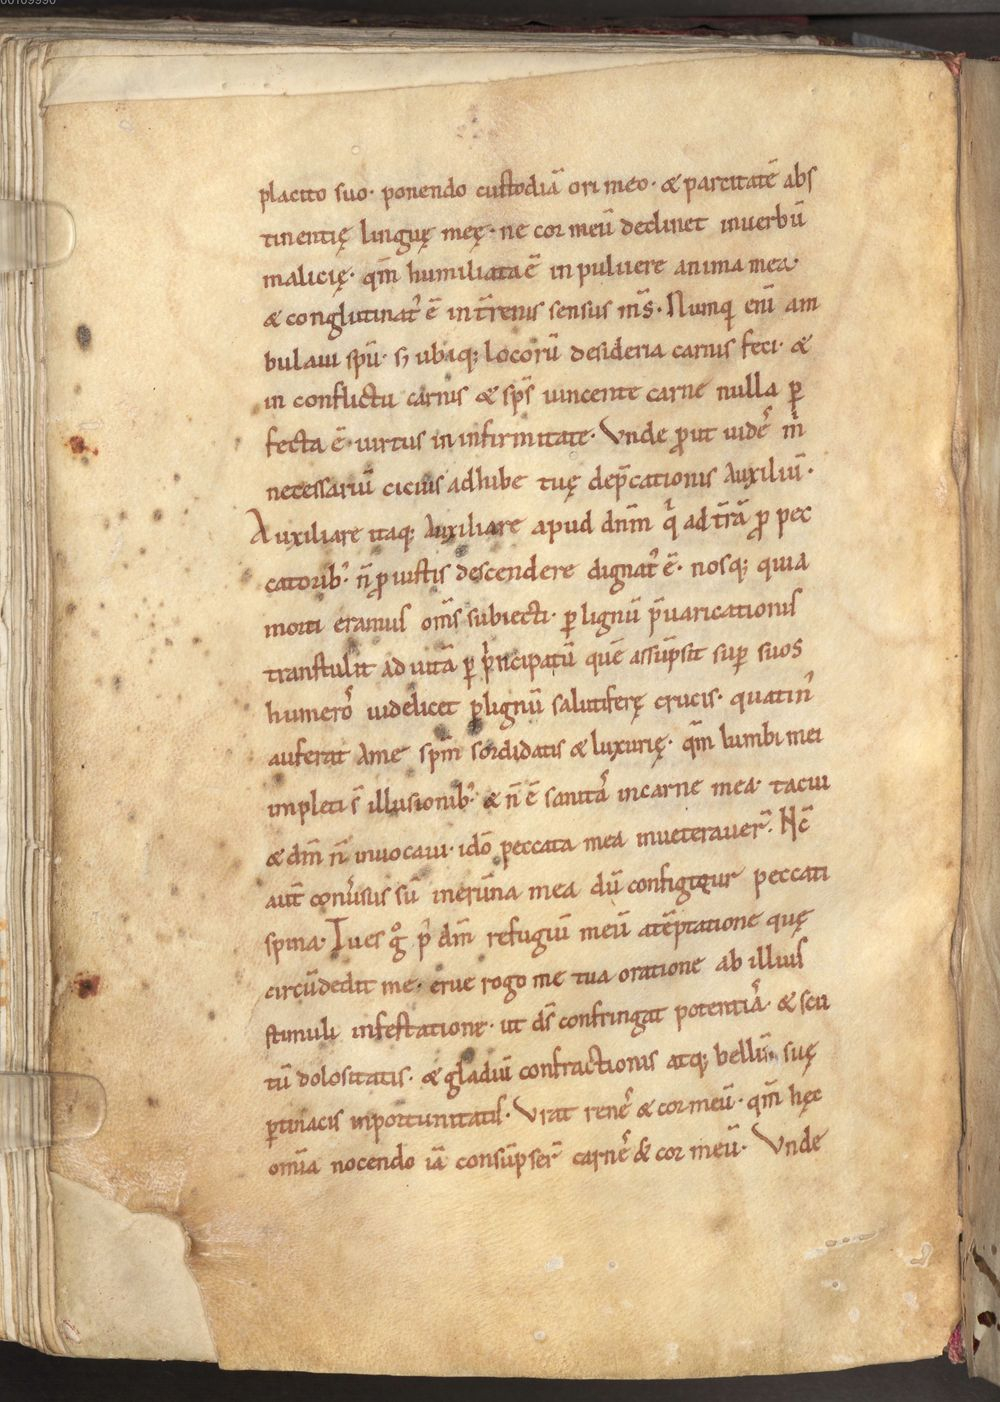 placito suo· ponendo custodiā ori meo· & parcitatē abs
tinentię linguę meę· ne cor meū declinet inuerbū
malicię· qm̄ humiliata ē in puluere anima mea·
& conglutinat᷒ ē in t̄renis sensus m̄s· Numqͥ eni̅ am
bulaui spū· sʒ ubiqꝫ locorū desideria carnis feci· &
in conflictu carnis & sp̄s uincente carne nulla ꝑ
fecta ē uirtus in infirmitate· Vnde ꝓut uidet᷒ m̄
necessariū cicius adhibe tuę dep̄cationis Auxiliū·
Auxiliare itaqꝫ Auxiliare apud dnm̄ qͥ ad t̄rā ꝓ pec
catorib᷒ n̄ ꝓ iustis descendere dignat᷒ ē· nosqꝫ quia
morti eramus om̄s subiecti· ꝑ lignū p̄uaricationis
transtulit ad uitā ꝑ pͥncipatū quē assūpsit suꝑ suos
humero᷒ uidelicet ꝑ lignū salutiferę crucis· quatin᷒
auferat Ame spm̄ sordidatis & luxurię· qm̄ lumbi mei
impleti s̄ illusionib᷒ & n̄ ē sanita᷒ incarne mea· tacui
& dm̄ n̄ inuocaui· idō peccata mea inueterauer̄· Nc̄
aut̄ conu᷒sus sū inerūna mea dū configitur peccati
spina· Tu es gͦ pͥ dm̄ refugiū meū atēptatione quę
circūdedit me· erue rogo me tua oratione ab illius
stimuli infestatione· ut ds̄ confringat potentiā· & scu
tū dolositatis· & gladiū confractionis atqꝫ bellū suę
ꝑtinacis inportunitatis· Vrat rene᷒ & cor meū· qm̄ hęc
om̄ia nocendo iā consūpser̄ carne᷒ & cor meū· Vnde